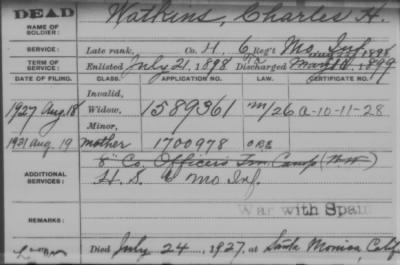 DEAD
NAME OF SOLDIER: Watkins, Charles H.
SERVICE: Late rank, Co. H, 6 Reg't Mo. Inf.
TERM OF SERVICE: Enlisted July 21, 1898 Discharged May 10, 1899
DATE OF FILING. CLASS. APPLICATION NO. LAW. CERTIFICATE NO.
Invalid,
1927 Aug. 18 Widow, 1589361 m/26 a-10-11-28
Minor,
1931 Aug. 19 mother 1700978
ADDITIONAL SERVICES: 8" Co. Officers Trn. Camp
H. S. 6 Mo Inf.
War with Spain
REMARKS:
Died July 24, 1927, at Santa Monica, Calif